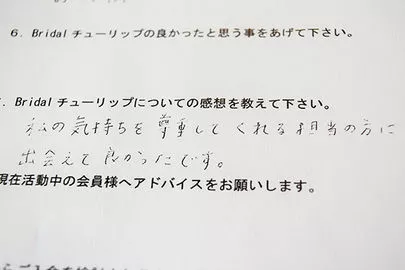 6. Bridal チューリップの良かったと思う事をあげて下さい。
7. Bridal チューリップについての感想を教えて下さい。
私の気持ちを尊重してくれる担当の方に
出会えて良かったです。
現在活動中の会員様へアドバイスをお願いします。